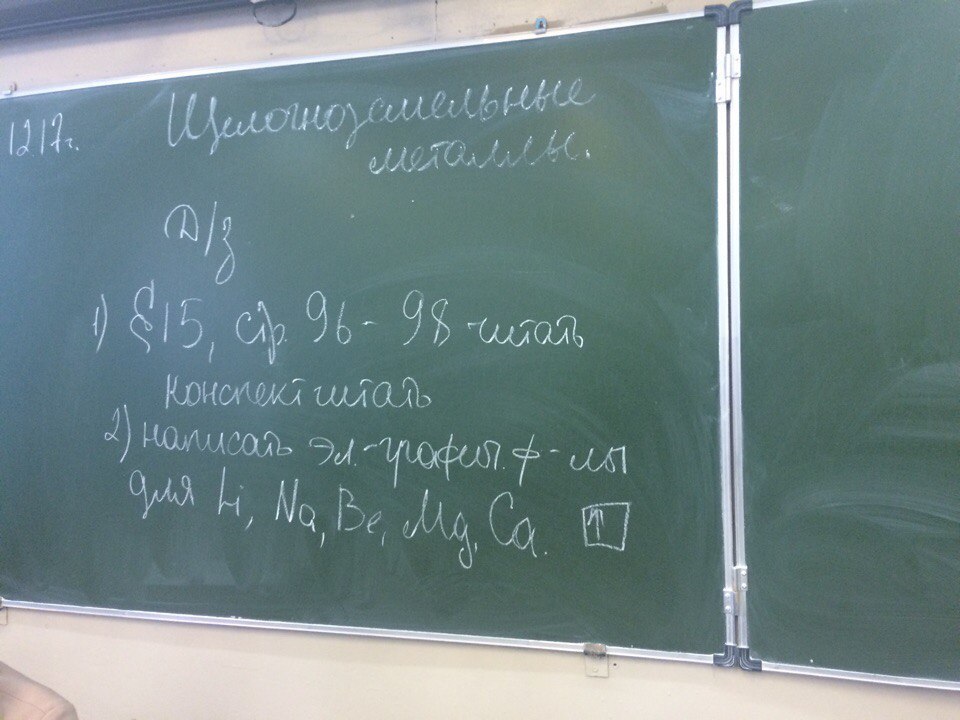 12.17г. Щелочноземельные
металлы.
Д/з
1) §15, стр. 96 - 98 читать
конспект читать
2) написать эл.-графич. ф-лы
для Li, Na, Be, Mg, Ca. ↑